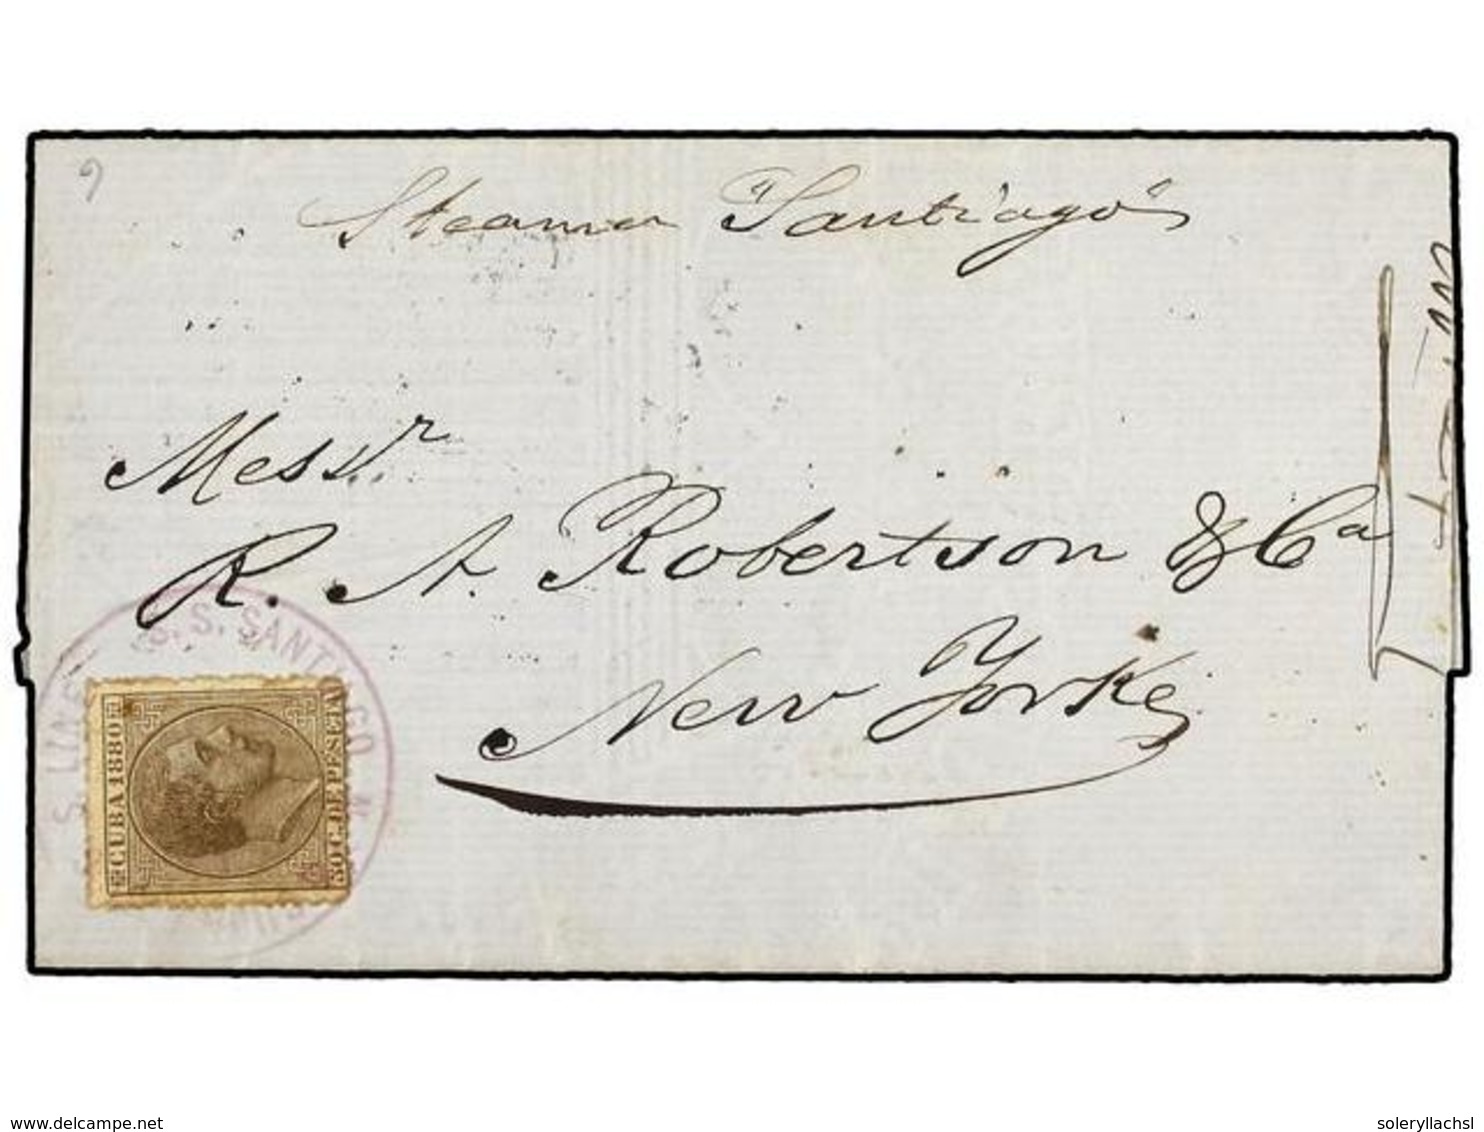 Steamer "Santiago"
Messr
R. A. Robertson & Ca
New Yorke
S. S. SANTIAGO
S. LINE
CUBA 1880
50 C. DE PESETA
www.delcampe.net
soleryllachsl